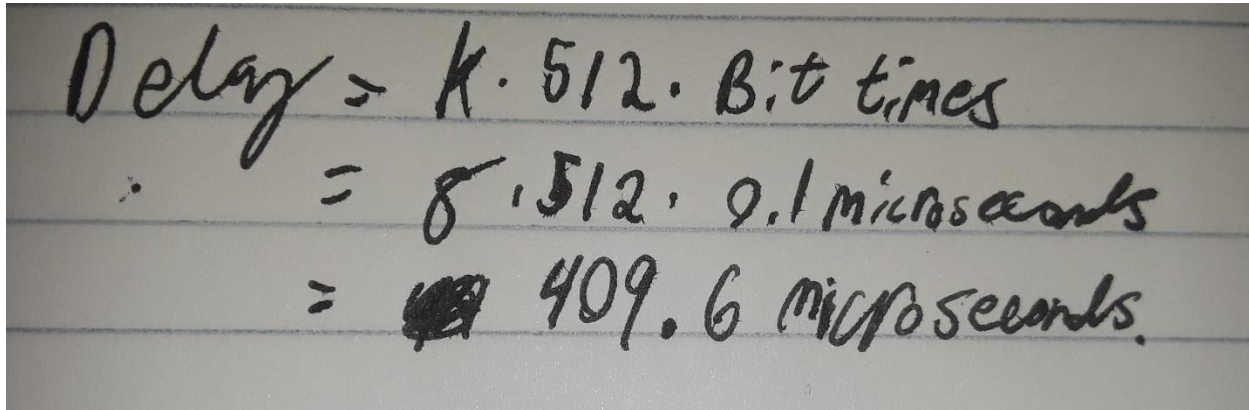 Delay = K. 512. Bit times
= 8.512. 0.1 microseconds
= 409.6 microseconds.